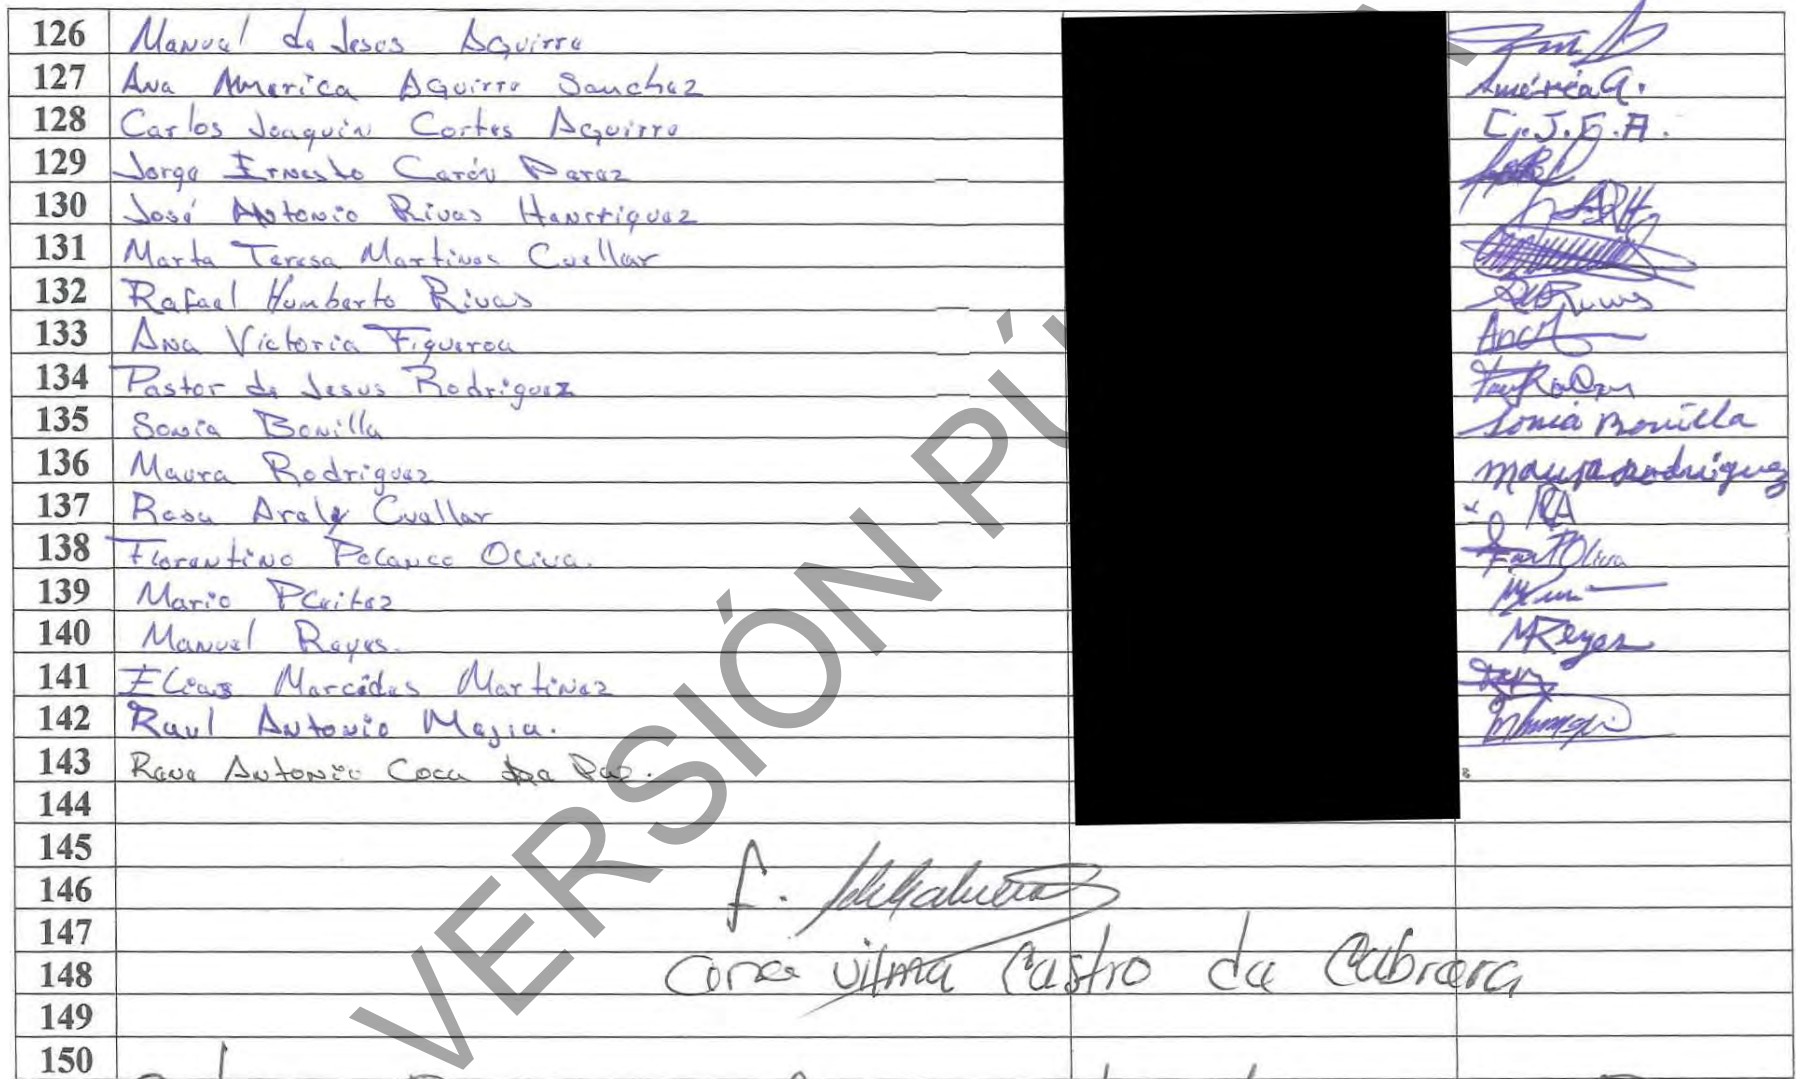 126 Manual de Jesus Aguirre América A.
127 Ana America Aguirre Sanchez
128 Carlos Joaquin Cortes Aguirre C.J.C.A.
129 Jorge Ernesto Carón Perez
130 José Antonio Rivas Henrriquez ARH
131 Marta Teresa Martines Cuellar
132 Rafael Humberto Rivas
133 Ana Victoria Figueroa
134 Pastor de Jesus Rodriguez
135 Sonia Bonilla Sonia Bonilla
136 Maura Rodriguez maura rodriguez
137 Rosa Araly Cuellar RA
138 Florentino Polanco Oliva. Oliva
139 Mario Benitez
140 Manuel Reyes. MReyes
141 Elias Mercedes Martinez
142 Raul Antonio Mejia.
143 Rene Antonio Coca Paz.
144
145
146 f.
147
148 Vilma Castro de Cabrera
149
150
VERSIÓN PÚ